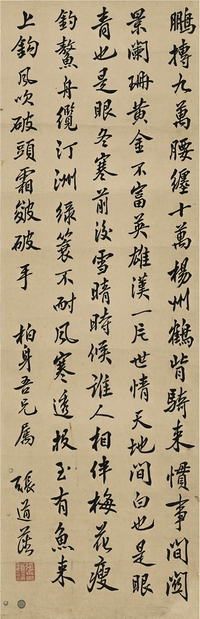 鵬摶九萬腰纏十萬楊州鶴背騎來慣事間關
景闌珊黃金不富英雄漢一片世情天地間白也是眼
青也是眼冬寒前後雪晴時候誰人相伴梅花瘦
釣鰲舟纜汀洲綠蓑不耐風寒透投至有魚來
上鈎風吹破頭霜皴破手
柏身吾兄屬
張道藩